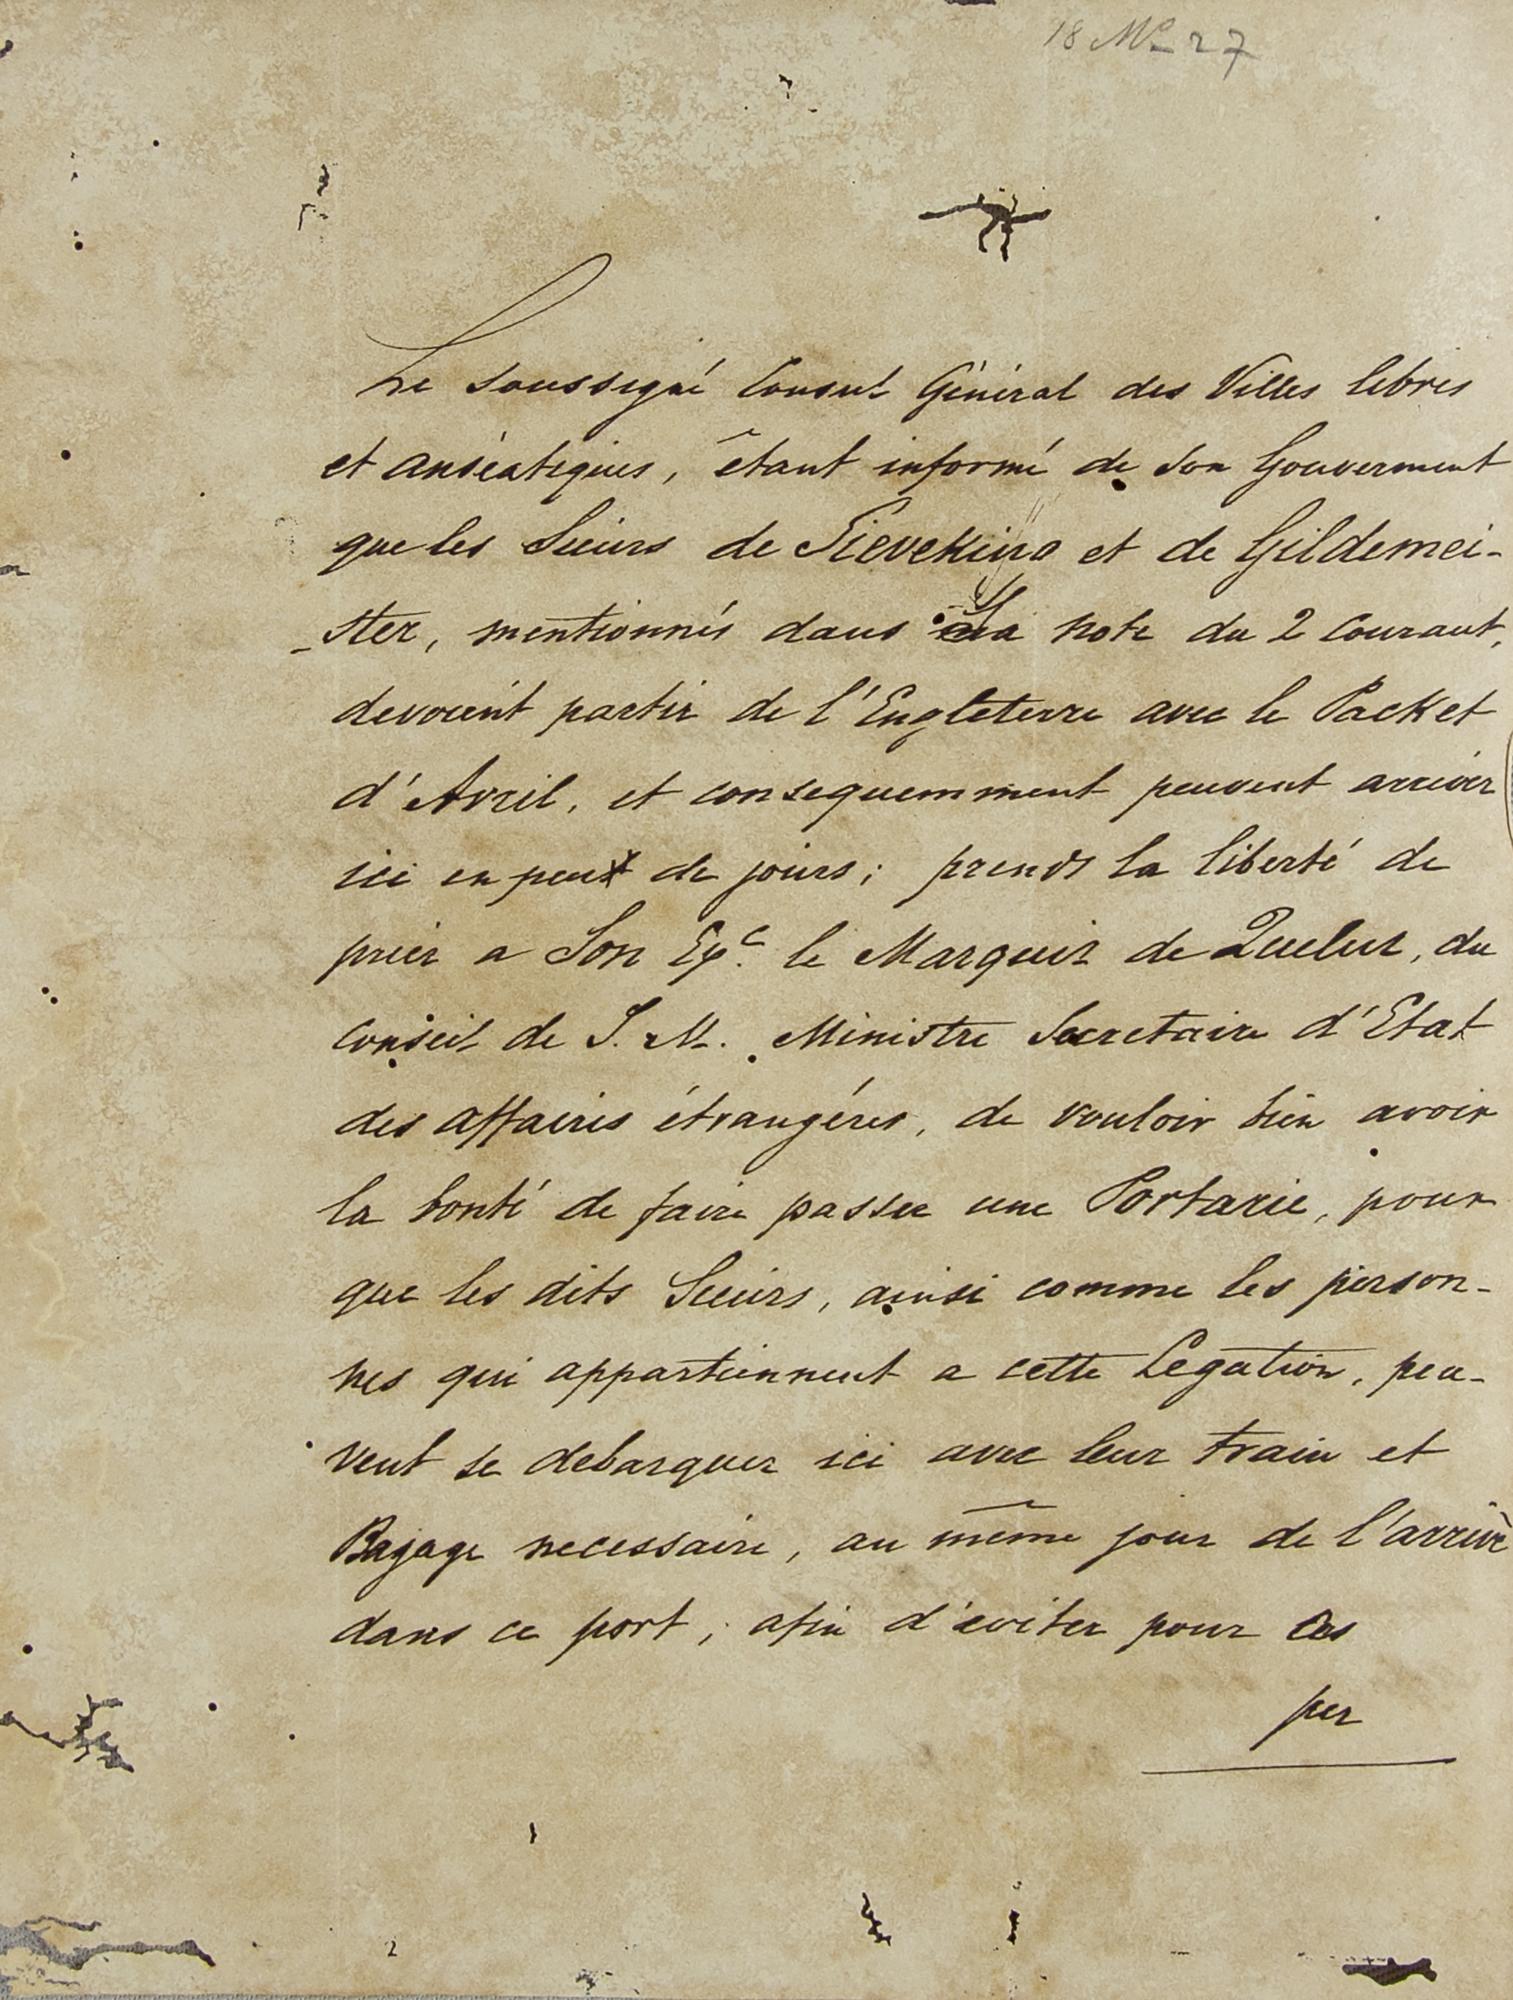 18 Mo 27
Le Soussigné Consul Général des Villes libres
et anséatiques, êtant informé de son Gouverment
que les Sieurs de Sieveking et de Gildemei-
-ster, mentionnés dans la note du 2 Courant,
devoient partir de l'Engleterre avec le Packet
d'Avril, et consequemment peuvent arriver
ici en peu de jours; prends la liberté de
prier a Son Exc. le Marquis de Queluz, du
Conseil de S. M. Ministre Secretaire d'Etat
des affaires étrangéres, de vouloir bien avoir
la bonté de faire passer une Portarie, pour
que les dits Sieurs, ainsi comme les person-
nes qui appartiennent a cette Legation, peu-
vent se debarquer ici avec leur train et
Bagage necessaire, au même jour de l'arrivé
dans ce port, afin d'eviter pour ces
per